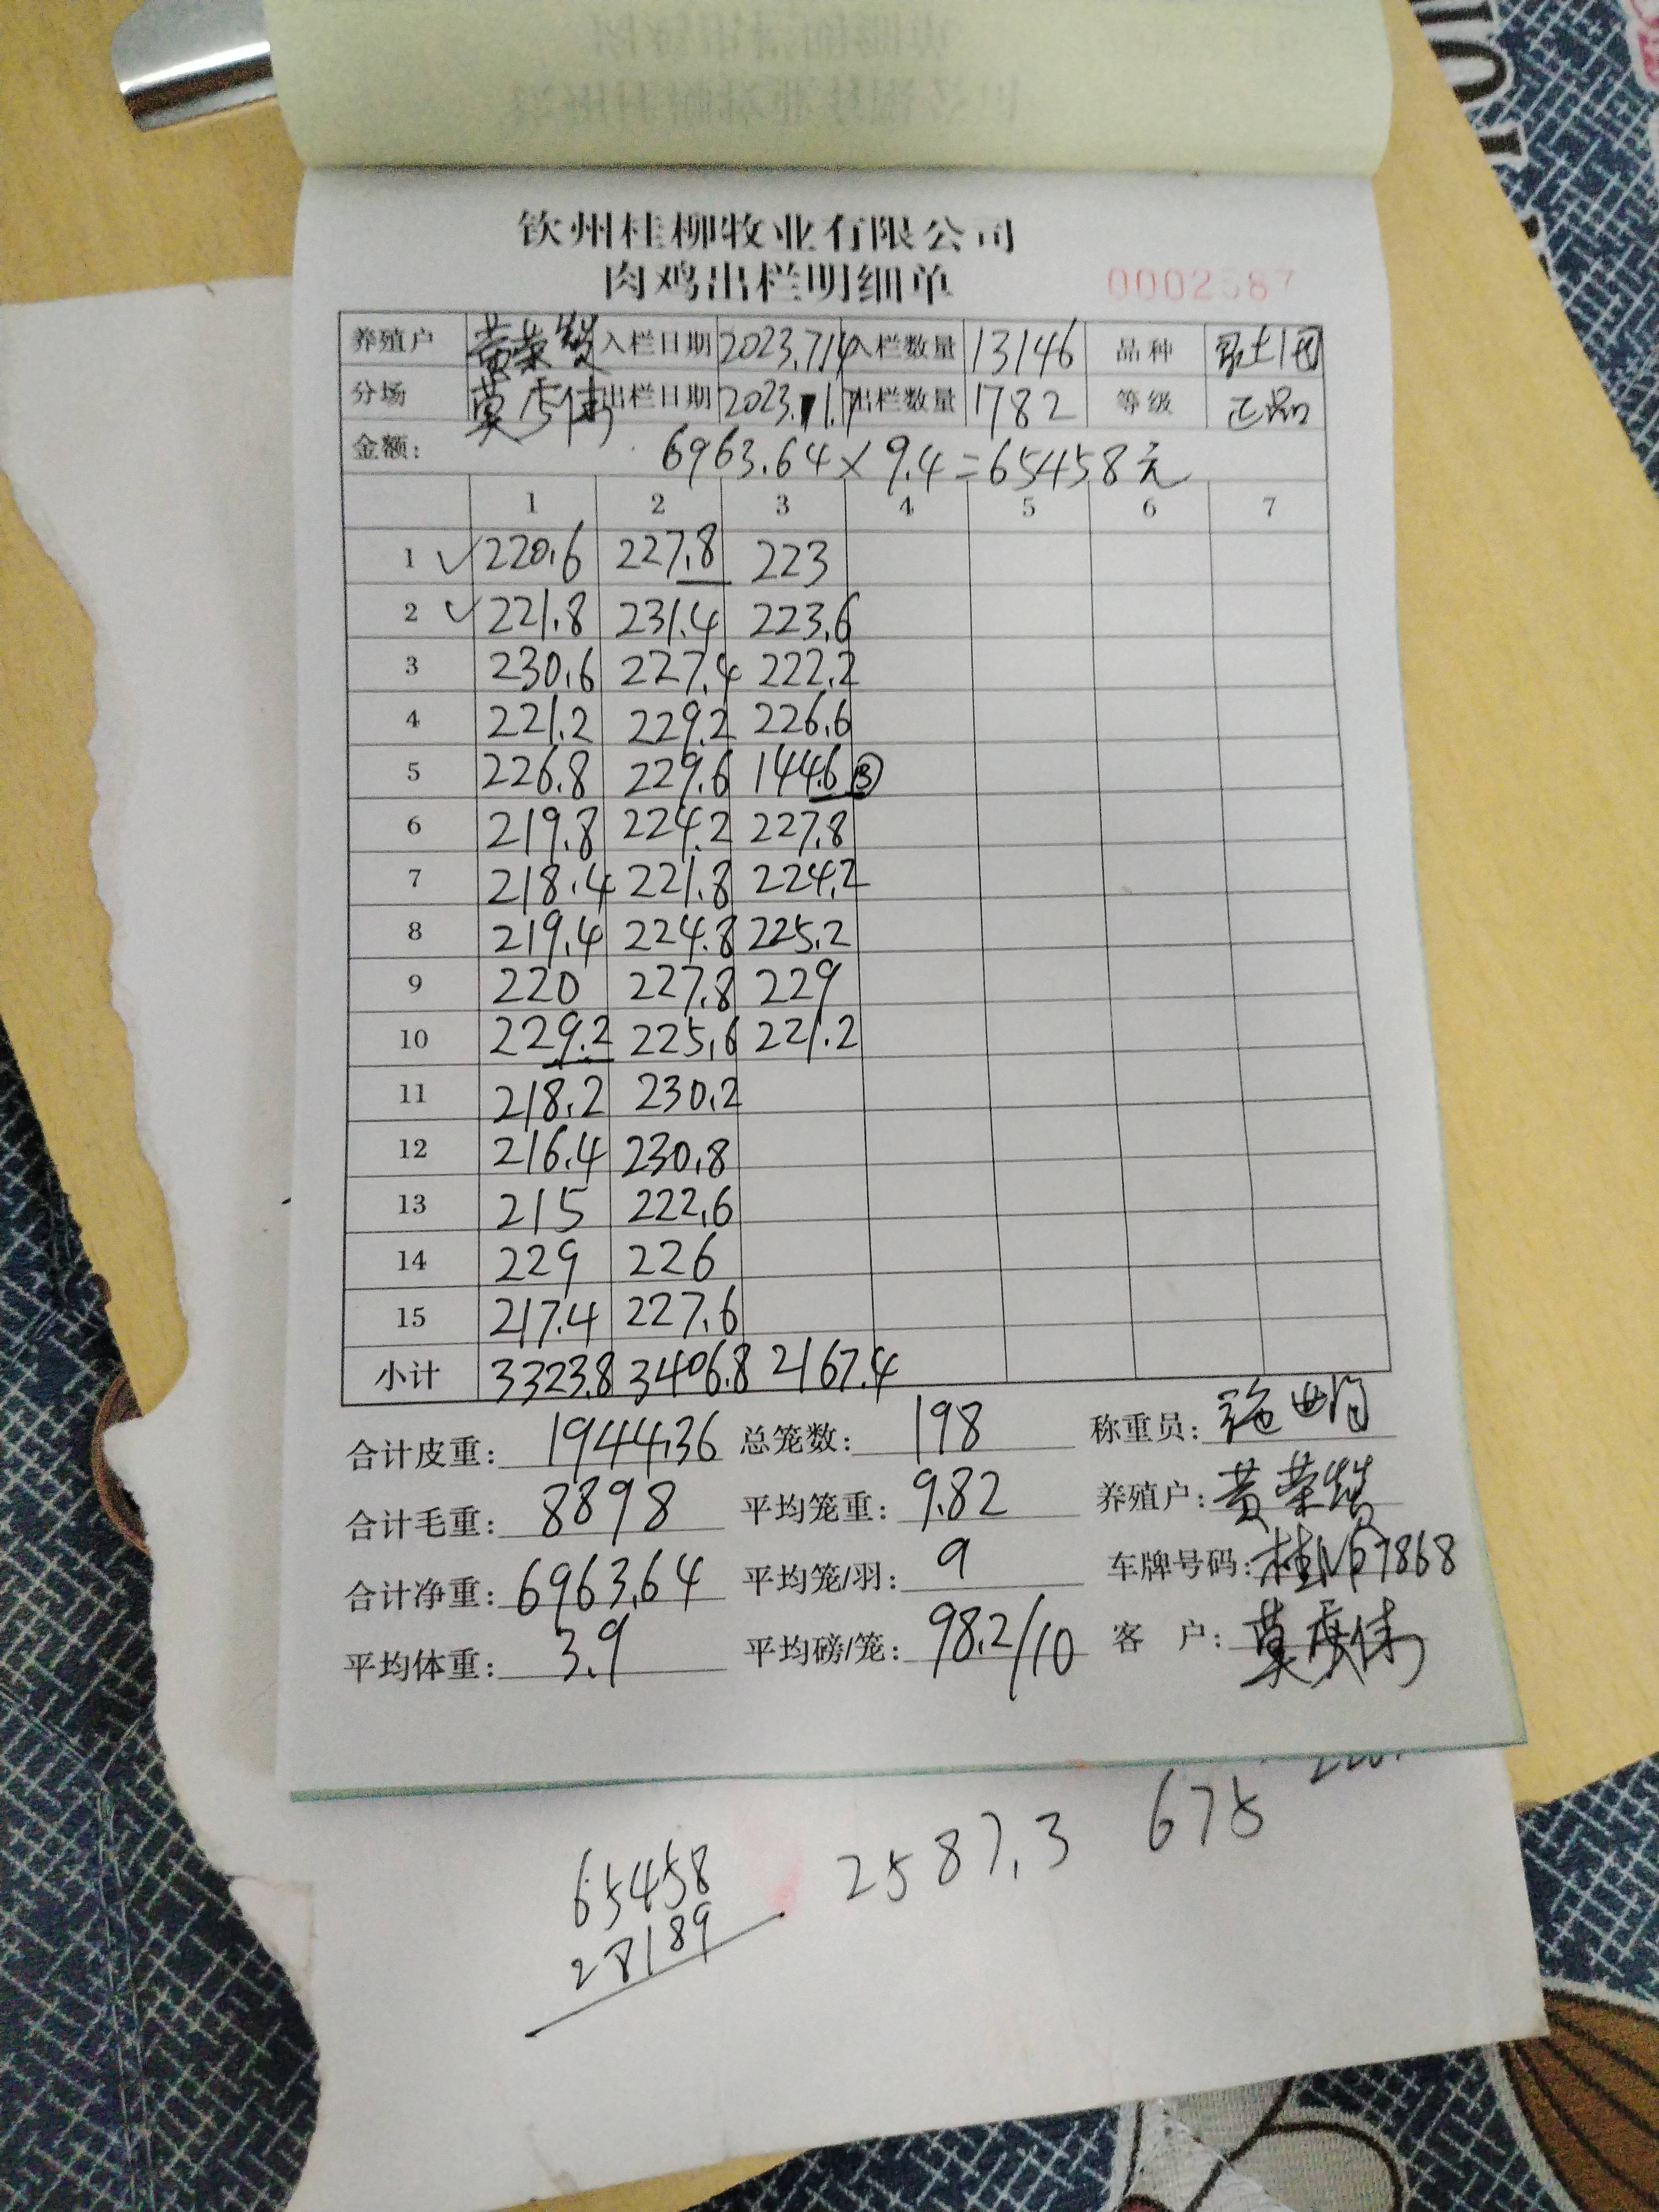 钦州桂柳牧业有限公司
肉鸡出栏明细单 0002587
养殖户 黄荣 入栏日期 2023.7.14 入栏数量 13146 品种
分场 莫 出栏日期 2023.11.7 出栏数量 1782 等级 正品
金额: 6963.64×9.4=65458元
1 2 3 4 5 6 7
1 ✓ 220.6 227.8 223
2 ✓ 221.8 231.4 223.6
3 230.6 227.4 222.2
4 221.2 229.2 226.6
5 226.8 229.6 144.6 ⑬
6 219.8 224.2 227.8
7 218.4 221.8 224.2
8 219.4 224.8 225.2
9 220 227.8 229
10 229.2 225.6 221.2
11 218.2 230.2
12 216.4 230.8
13 215 222.6
14 229 226
15 217.4 227.6
小计 3323.8 3406.8 2167.4
合计皮重: 1944.36 总笼数: 198 称重员:
合计毛重: 8898 平均笼重: 9.82 养殖户: 黄荣
合计净重: 6963.64 平均笼/羽: 9 车牌号码: 桂 7868
平均体重: 3.9 平均磅/笼: 98.2/10 客 户: 莫
65458 2587.3 675
28189